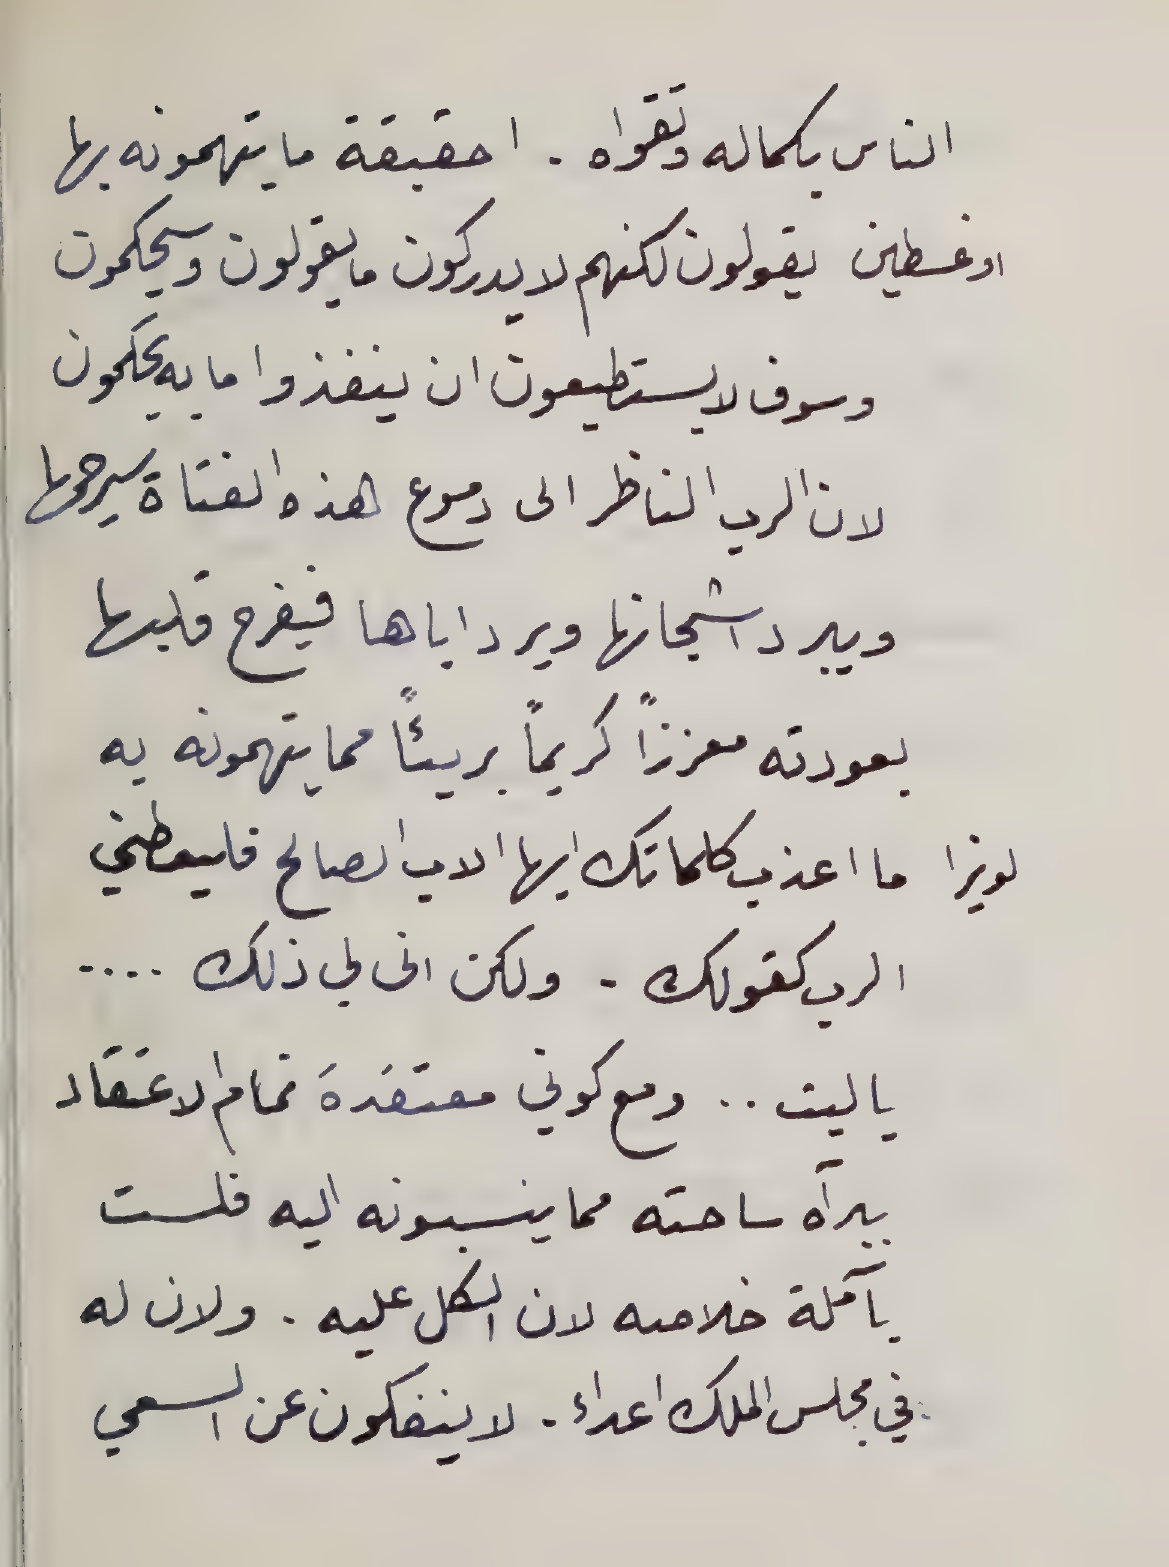 الناس بكماله وتقواه . احقيقة ما يتهمونه بها
اوغسطين يقولون لكنهم لا يدركون ما يقولون وسيحكمون
وسوف لا يستطيعون ان ينفذوا ما به يحكمون
لان الرب الناظر الى دموع هذه الفتاة سيرحمها
ويبرد اشجانها ويرد اباها فيفرح قلبها
بعودته معززاً كريماً بريئاً مما يتهمونه به
لويزا ما اعذب كلماتك ايها الاب الصالح فليعطني
الرب كقولك . ولكن انى لي ذلك ....
يا ليت .. ومع كوني معتقدة تمام الاعتقاد
ببرآة ساحته مما ينسبونه اليه فلست
بآملة خلاصه لان الكل عليه . ولان له
في مجلس الملك اعداء . لا ينفكون عن السعي